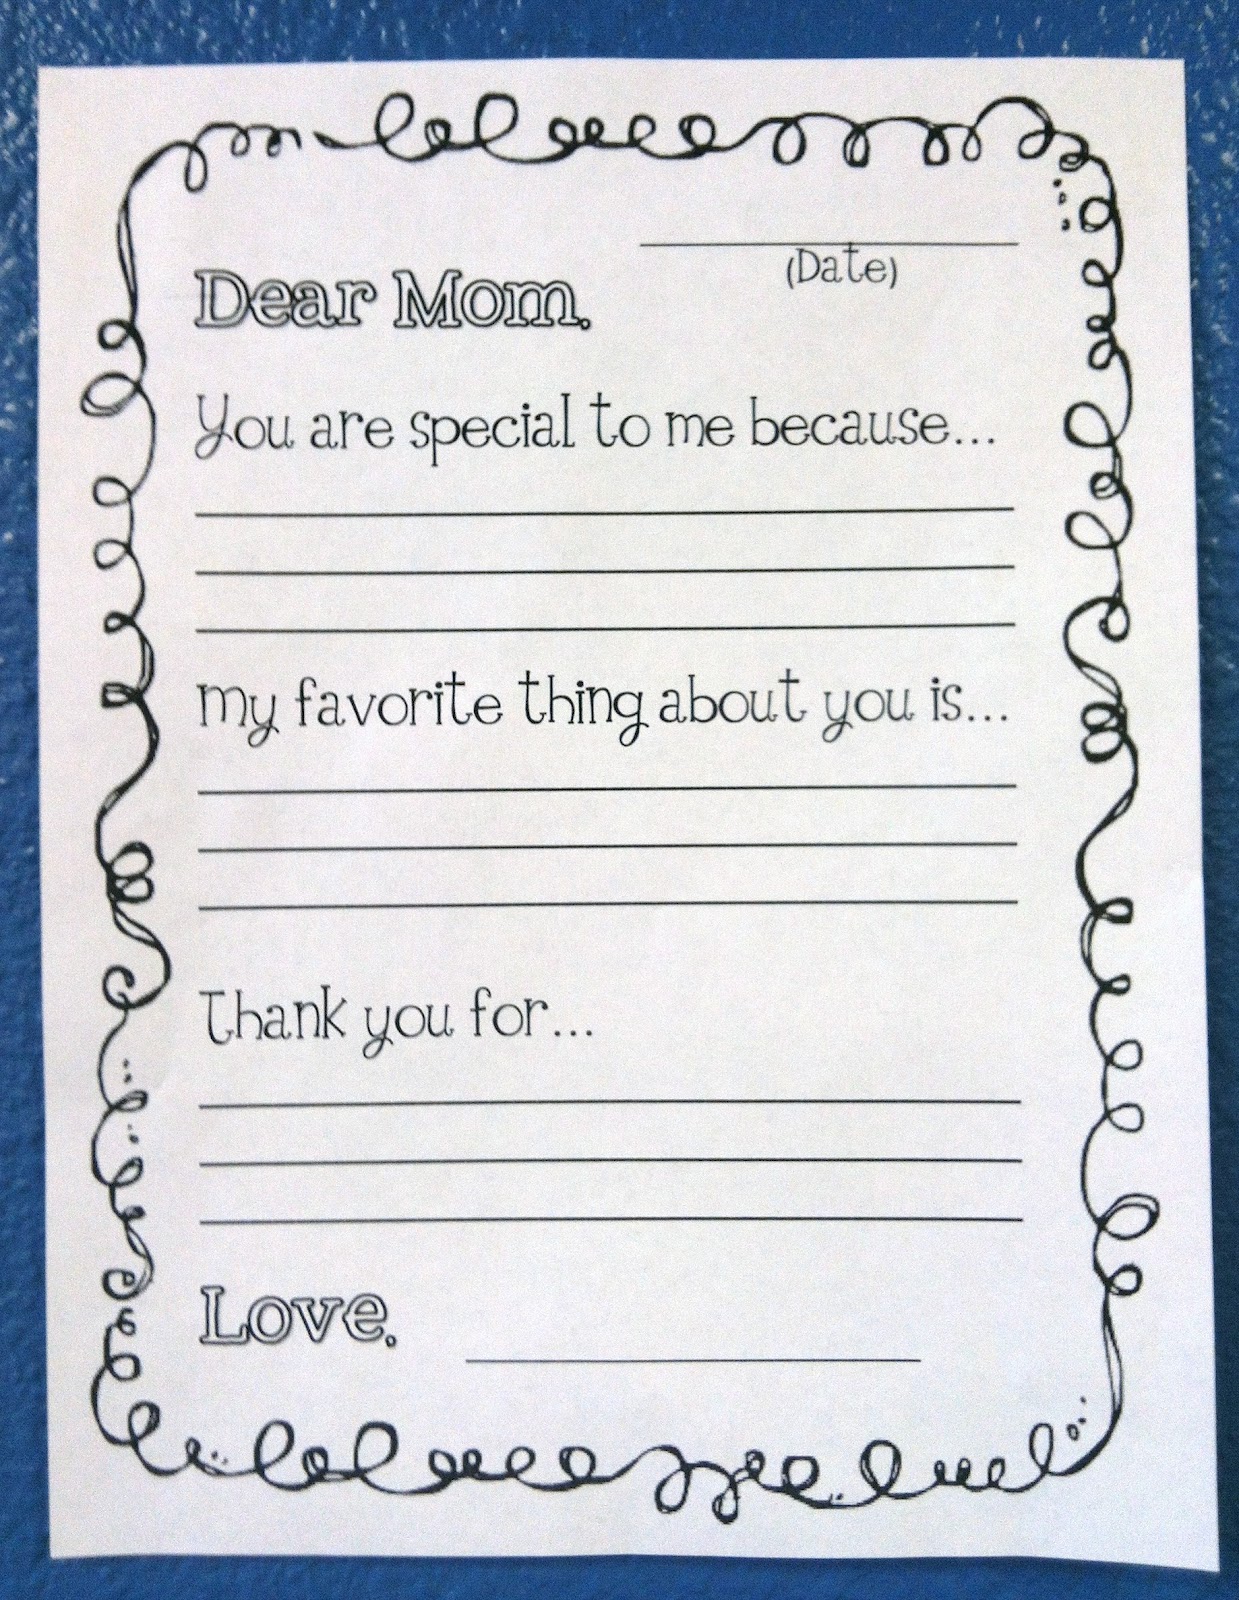 (Date)
Dear Mom,
You are special to me because...
My favorite thing about you is...
Thank you for...
Love,